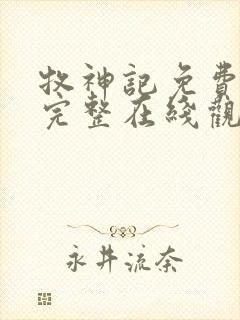 牧神記免費
完整在綫觀
永井流奈